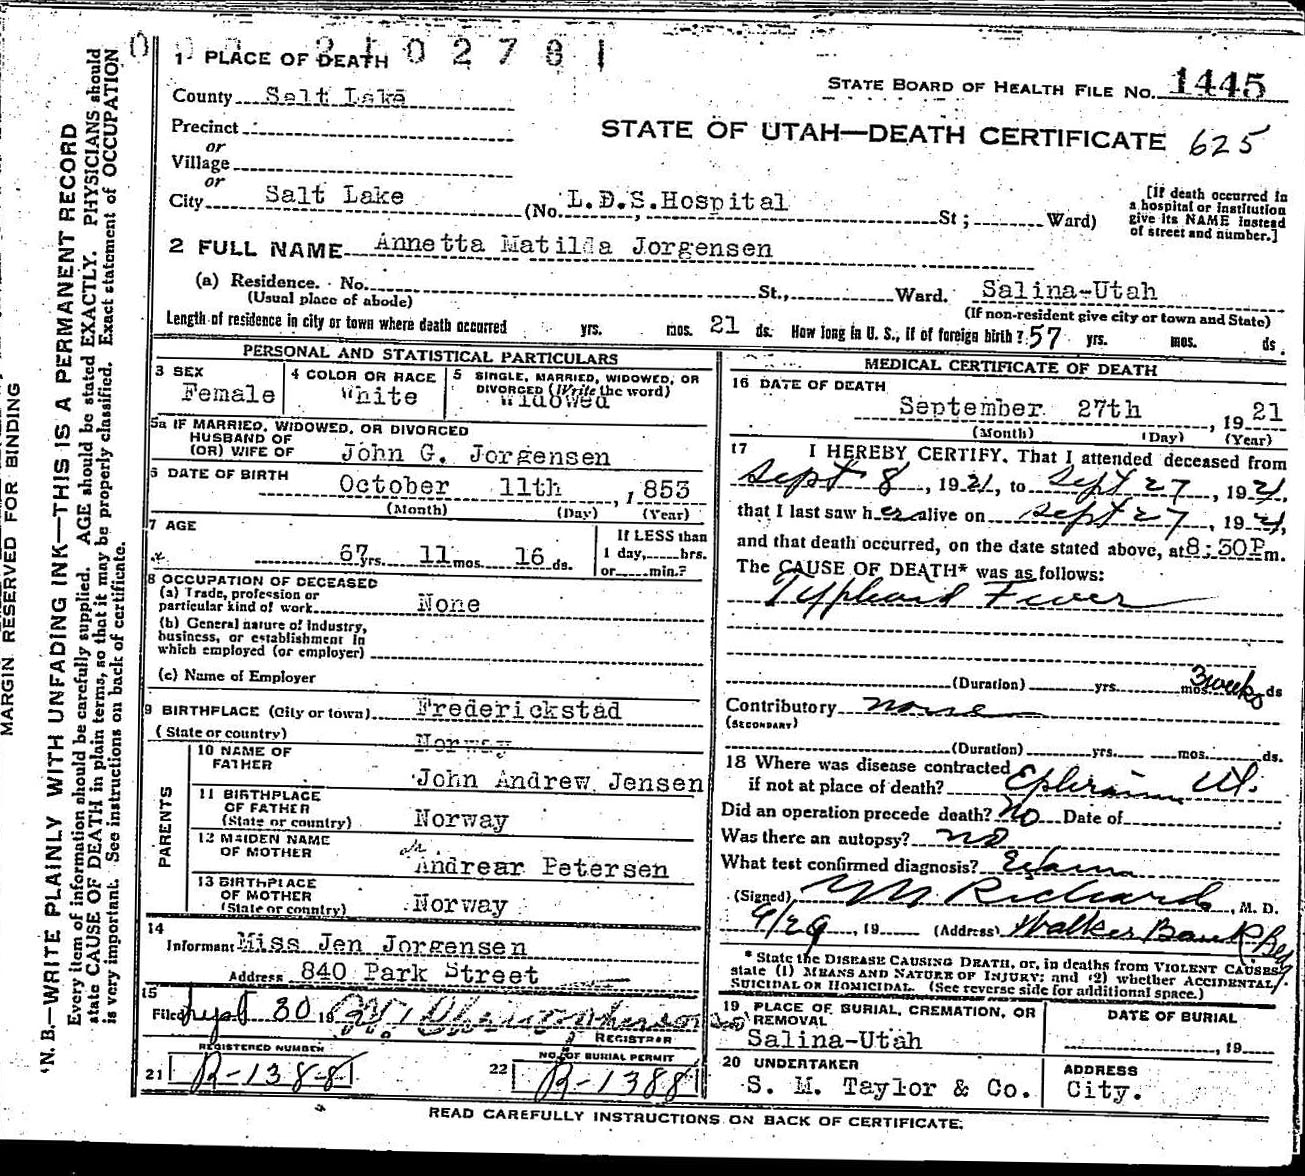 0 0 2 1 0 2 7 8 1
1 PLACE OF DEATH
STATE BOARD OF HEALTH FILE NO. 1445
County Salt Lake
STATE OF UTAH—DEATH CERTIFICATE 625
Precinct
or
Village
or
City Salt Lake (No. L.D.S.Hospital St; Ward)
[If death occurred in
a hospital or institution
give its NAME instead
of street and number.]
2 FULL NAME Annetta Matilda Jorgensen
(a) Residence. No. St., Ward. Salina-Utah
(Usual place of abode) (If non-resident give city or town and State)
Length of residence in city or town where death occurred yrs. mos. 21 ds. How long in U. S., if of foreign birth? 57 yrs. mos. ds.
PERSONAL AND STATISTICAL PARTICULARS
3 SEX Female
4 COLOR OR RACE White
5 SINGLE, MARRIED, WIDOWED, OR
DIVORCED (Write the word)
Widowed
5a IF MARRIED, WIDOWED, OR DIVORCED
HUSBAND OF
(OR) WIFE OF John G. Jorgensen
6 DATE OF BIRTH October 11th, 1853
(Month) (Day) (Year)
7 AGE 67 yrs. 11 mos. 16 ds.
If LESS than
1 day, hrs.
or min.?
8 OCCUPATION OF DECEASED
(a) Trade, profession or
particular kind of work None
(b) General nature of Industry,
business, or establishment in
which employed (or employer)
(c) Name of Employer
9 BIRTHPLACE (City or town) Frederickstad
(State or country) Norway
PARENTS
10 NAME OF
FATHER John Andrew Jensen
11 BIRTHPLACE
OF FATHER
(State or country) Norway
12 MAIDEN NAME
OF MOTHER Andrear Petersen
13 BIRTHPLACE
OF MOTHER
(State or country) Norway
14
Informant Miss Jen Jorgensen
Address 840 Park Street
15
Filed Sept 30 19
REGISTRAR
REGISTERED NUMBER
21 R-1388
NO. OF BURIAL PERMIT
22 R-1388
MEDICAL CERTIFICATE OF DEATH
16 DATE OF DEATH
September 27th, 1921
(Month) (Day) (Year)
17 I HEREBY CERTIFY, That I attended deceased from
Sept 8, 1921, to Sept 27, 1921,
that I last saw her alive on Sept 27, 1921,
and that death occurred, on the date stated above, at 8:30P m.
The CAUSE OF DEATH* was as follows:
Typhoid Fever
(Duration) yrs. mos. 3 weeks ds
Contributory none
(SECONDARY)
(Duration) yrs. mos. ds.
18 Where was disease contracted
if not at place of death? Ephraim Ut.
Did an operation precede death? No Date of
Was there an autopsy? no
What test confirmed diagnosis? Exam
(Signed) Richards, M. D.
9/29, 19 (Address) Walker Bank Bldg
* State the DISEASE CAUSING DEATH, or, in deaths from VIOLENT CAUSES,
state (1) MEANS AND NATURE OF INJURY; and (2) whether ACCIDENTAL,
SUICIDAL OR HOMICIDAL. (See reverse side for additional space.)
19 PLACE OF BURIAL, CREMATION, OR
REMOVAL
Salina-Utah
DATE OF BURIAL
, 19
20 UNDERTAKER
S. M. Taylor & Co.
ADDRESS
City.
READ CAREFULLY INSTRUCTIONS ON BACK OF CERTIFICATE.
MARGIN RESERVED FOR BINDING
N. B.—WRITE PLAINLY WITH UNFADING INK—THIS IS A PERMANENT RECORD
Every item of information should be carefully supplied. AGE should be stated EXACTLY. PHYSICIANS should
state CAUSE OF DEATH in plain terms, so that it may be properly classified. Exact statement of OCCUPATION
is very important. See instructions on back of certificate.